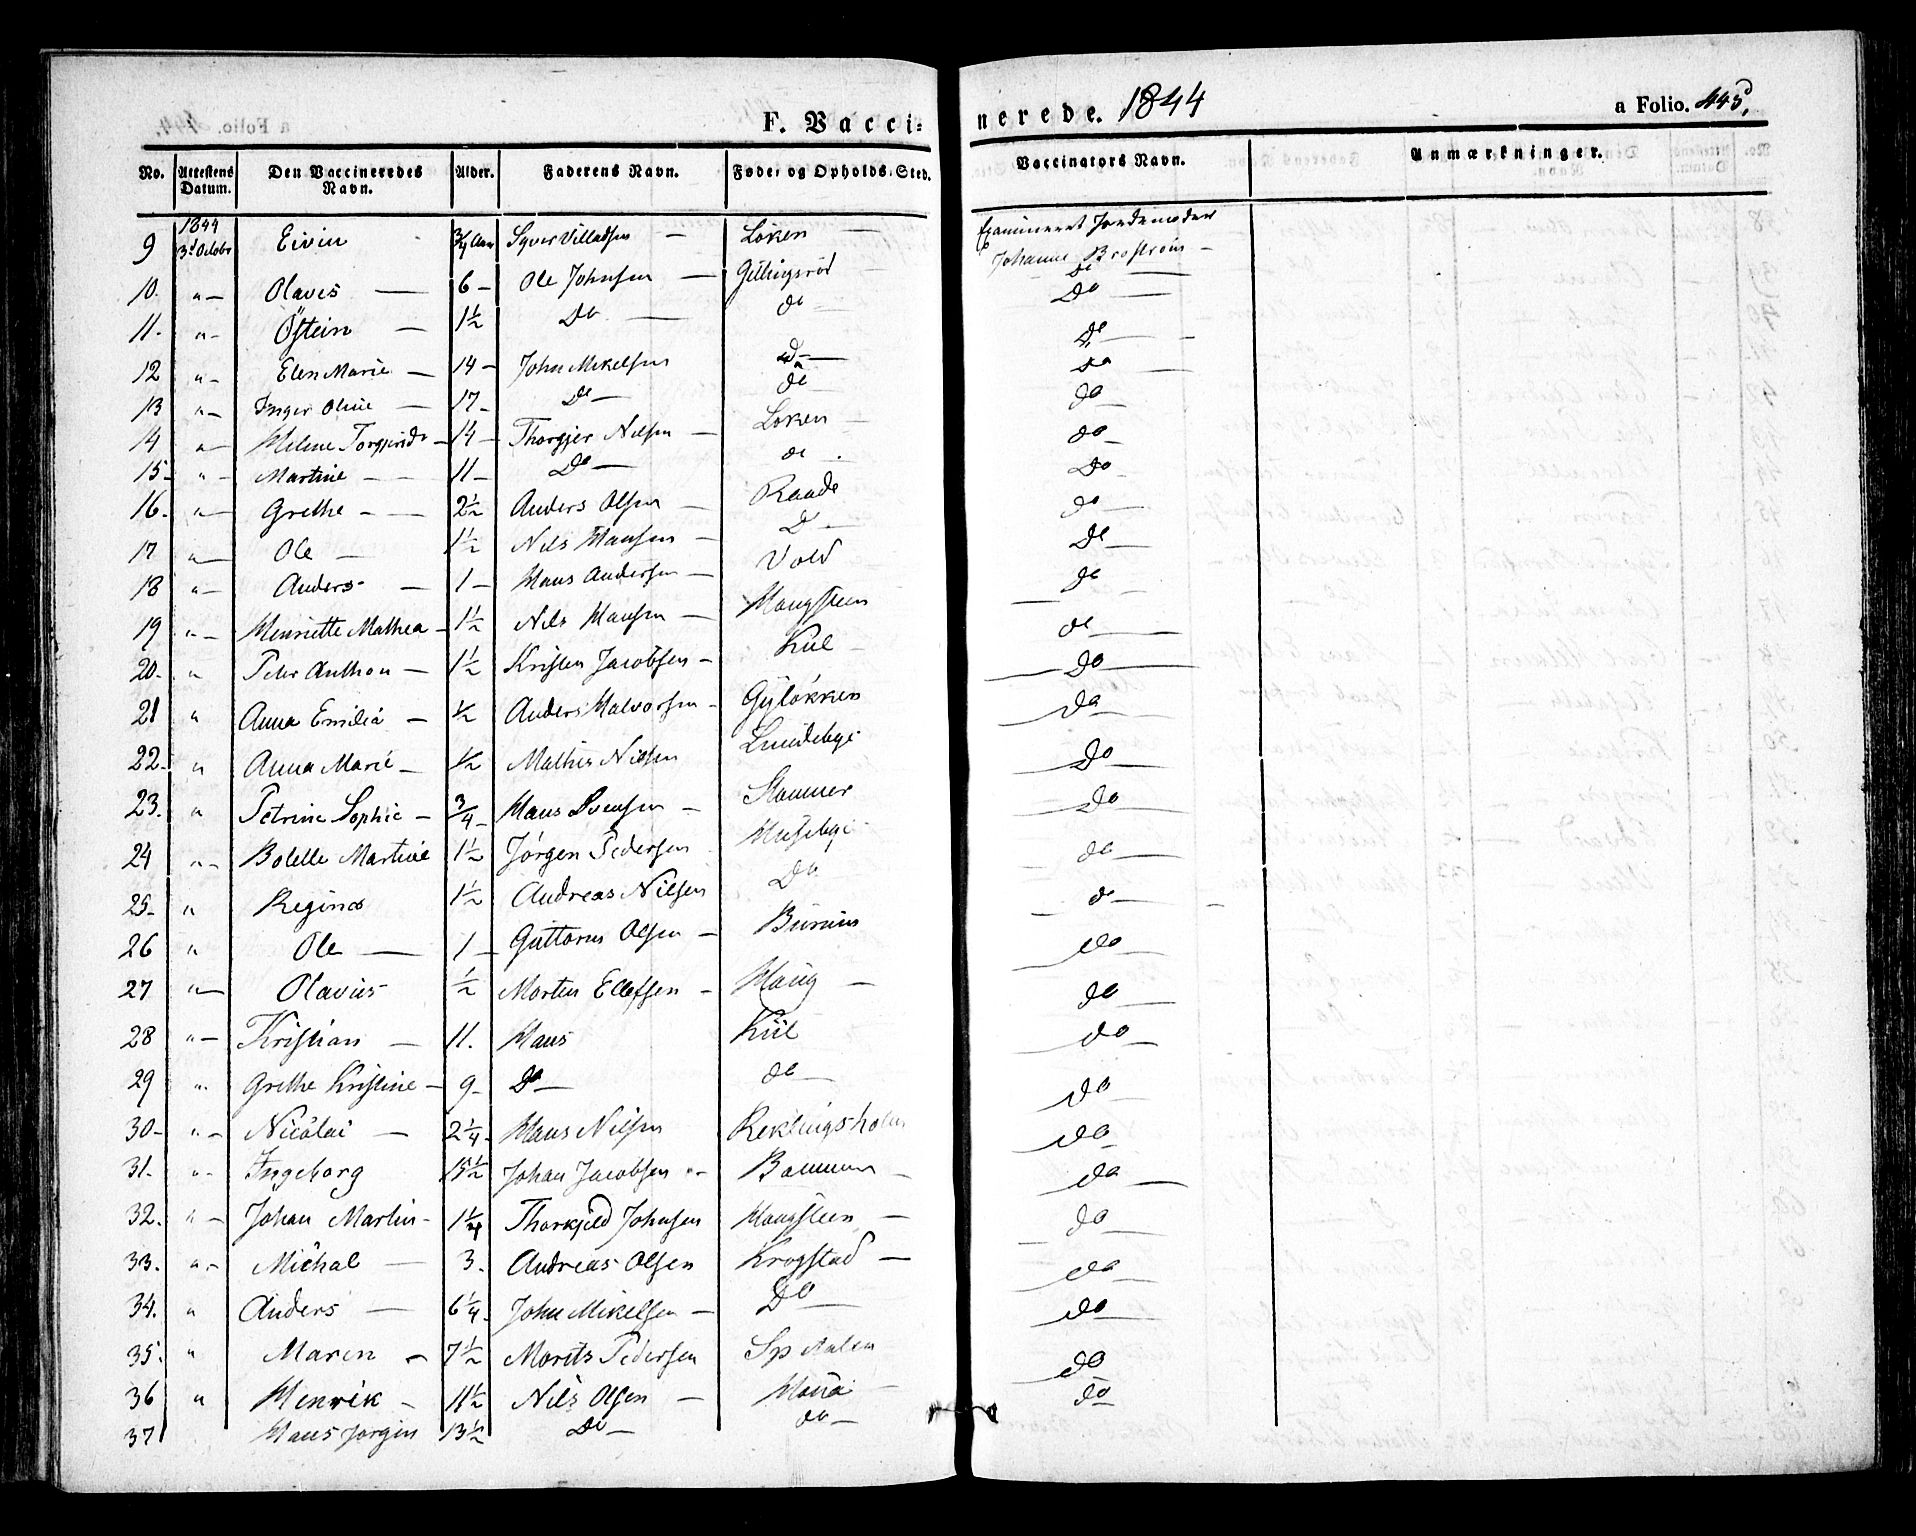 F. Vaccinerede. 1844 a Folio. 445,
No. Attestens Datum. Den Vaccineredes Navn. Alder. Faderens Navn. Føde- og Opholds-Sted. Vaccinators Navn. Anmærkninger.
9 1844 3d Octobr Eivin 3/4 Aar Syver Villadsen — Løken — Examineret Jordemoder Johanne Brostrøm —
10. " — Olaves — 6 — Ole Johnsen — Gillingsrød Do —
11. " — Östein — 1 1/2 Do — do Do —
12 " — Elen Marie — 14 — John Mikelsen do — do —
13 " — Inger Oline — 17 — Do — do do —
14 " — Helene Torgjersd — 14 — Thorgjer Nilsen — Loken — do —
15 — " — Martine — 11 — Do — do Do —
16. " — Grethe — 2 1/2 Anders Olsen — Raade do —
17 " — Ole — 1 1/2 Nils Hansen — Do — Do —
18 " — Anders — 1 — Hans Andersen — Vold do —
19 " — Henriette Mathea — 1 1/2 Nils Hansen — Haugsteen do —
20 — " Peter Anthon — 1 1/2 Kristen Jacobsen — Kiil — Do —
21 " Anna Emilia — 1/2 Anders Halvorsen — Gyløkken Do —
22. " Anna Marie — 1/2 Mathis Nielsen Lundebye Do —
23. " Petrine Sophie — 3/4 — Hans Svensen — Stammer Do —
24 " — Bolelle Martine 1 1/2 Jörgen Pedersen Husebye do —
25 — " Regina 1 1/2 Andreas Nilsen Do do —
26 " Ole — 1 — Guttorm Olsen — Burum do —
27 " — Olavus 1/2 Morten Ellefsen — Haug — do —
28 " — Kristian — 11. Hans Kiil do —
29 " Grethe Kristine — 9 — Do — do — do —
30 — " — Nicolai — 2 1/4 — Hans Nilsen Reklingsholm do —
31. " — Ingeborg 15 1/2 Johan Jacobsen — Bommen — do —
32. " — Johan Martin — 1 1/4 Thorkjeld Johnsen Haugsteen — do —
33. " — Michal — 3. Andreas Olsen Krogstad — do —
34. " Anders — 6 1/4 — John Mikelsen — Do — do —
35. " Maren — 7 1/2 Morits Pedersen do —
36 " Henrik — 11 1/2 Nils Olsen — do
37 Hans Jorgin 13 1/2 Do — do —